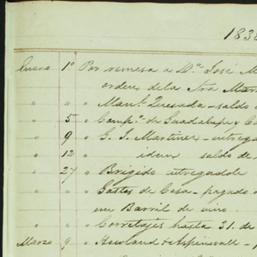 183
Enero 1º Por remesa a Dn José M
orden de la Sra Mar
" " " Manl Quesada - saldo
" 5 " Compª de Guadalupe y C
" 9 " G. J. Martinez - entrega
" 12 " idem saldo de
" 27 " Brigido entregadole
" " " Gastos de Casa - pagado
un Barril de vino
" " " Corretajes hasta 31 de
Marzo 9 " Howland & Aspinwall -